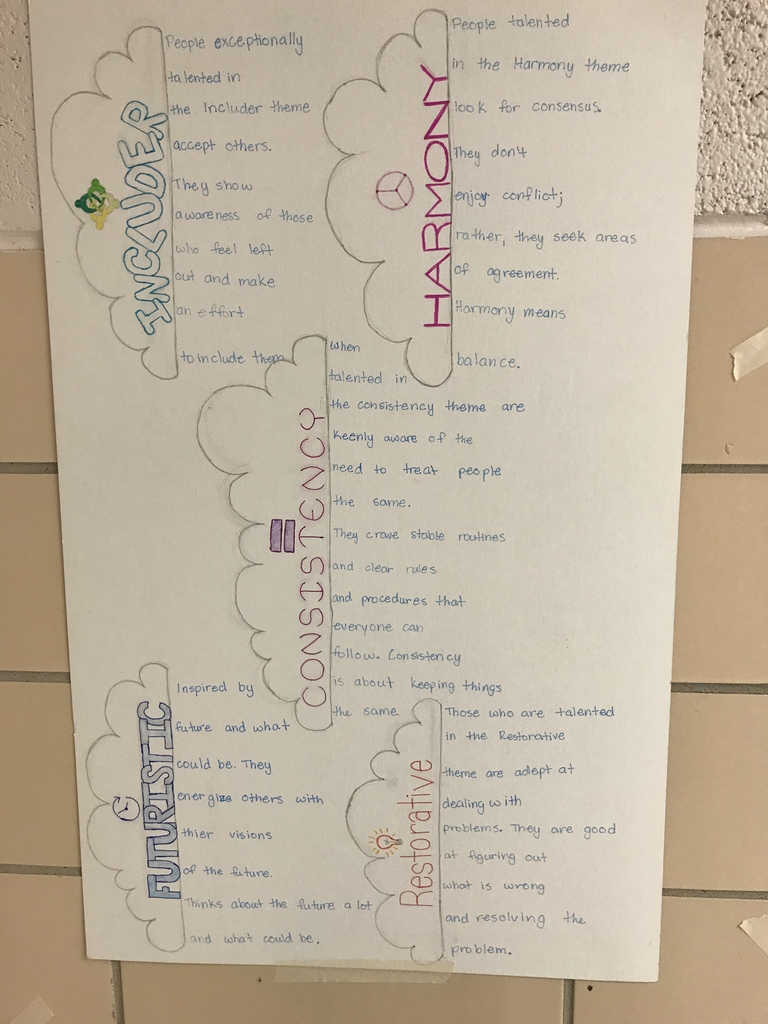 INCLUDER
People exceptionally
talented in
the Includer theme
accept others.
They show
awareness of those
who feel left
out and make
an effort
to include them
HARMONY
People talented
in the Harmony theme
look for consensus.
They don't
enjoy conflict;
rather, they seek areas
of agreement.
Harmony means
balance.
CONSISTENCY
When
talented in
the consistency theme are
keenly aware of the
need to treat people
the same.
They crave stable routines
and clear rules
and procedures that
everyone can
follow. Consistency
is about keeping things
the same
FUTURISTIC
Inspired by
future and what
could be. They
energize others with
thier visions
of the future.
Thinks about the future a lot
and what could be.
Restorative
Those who are talented
in the Restorative
theme are adept at
dealing with
problems. They are good
at figuring out
what is wrong
and resolving the
problem.